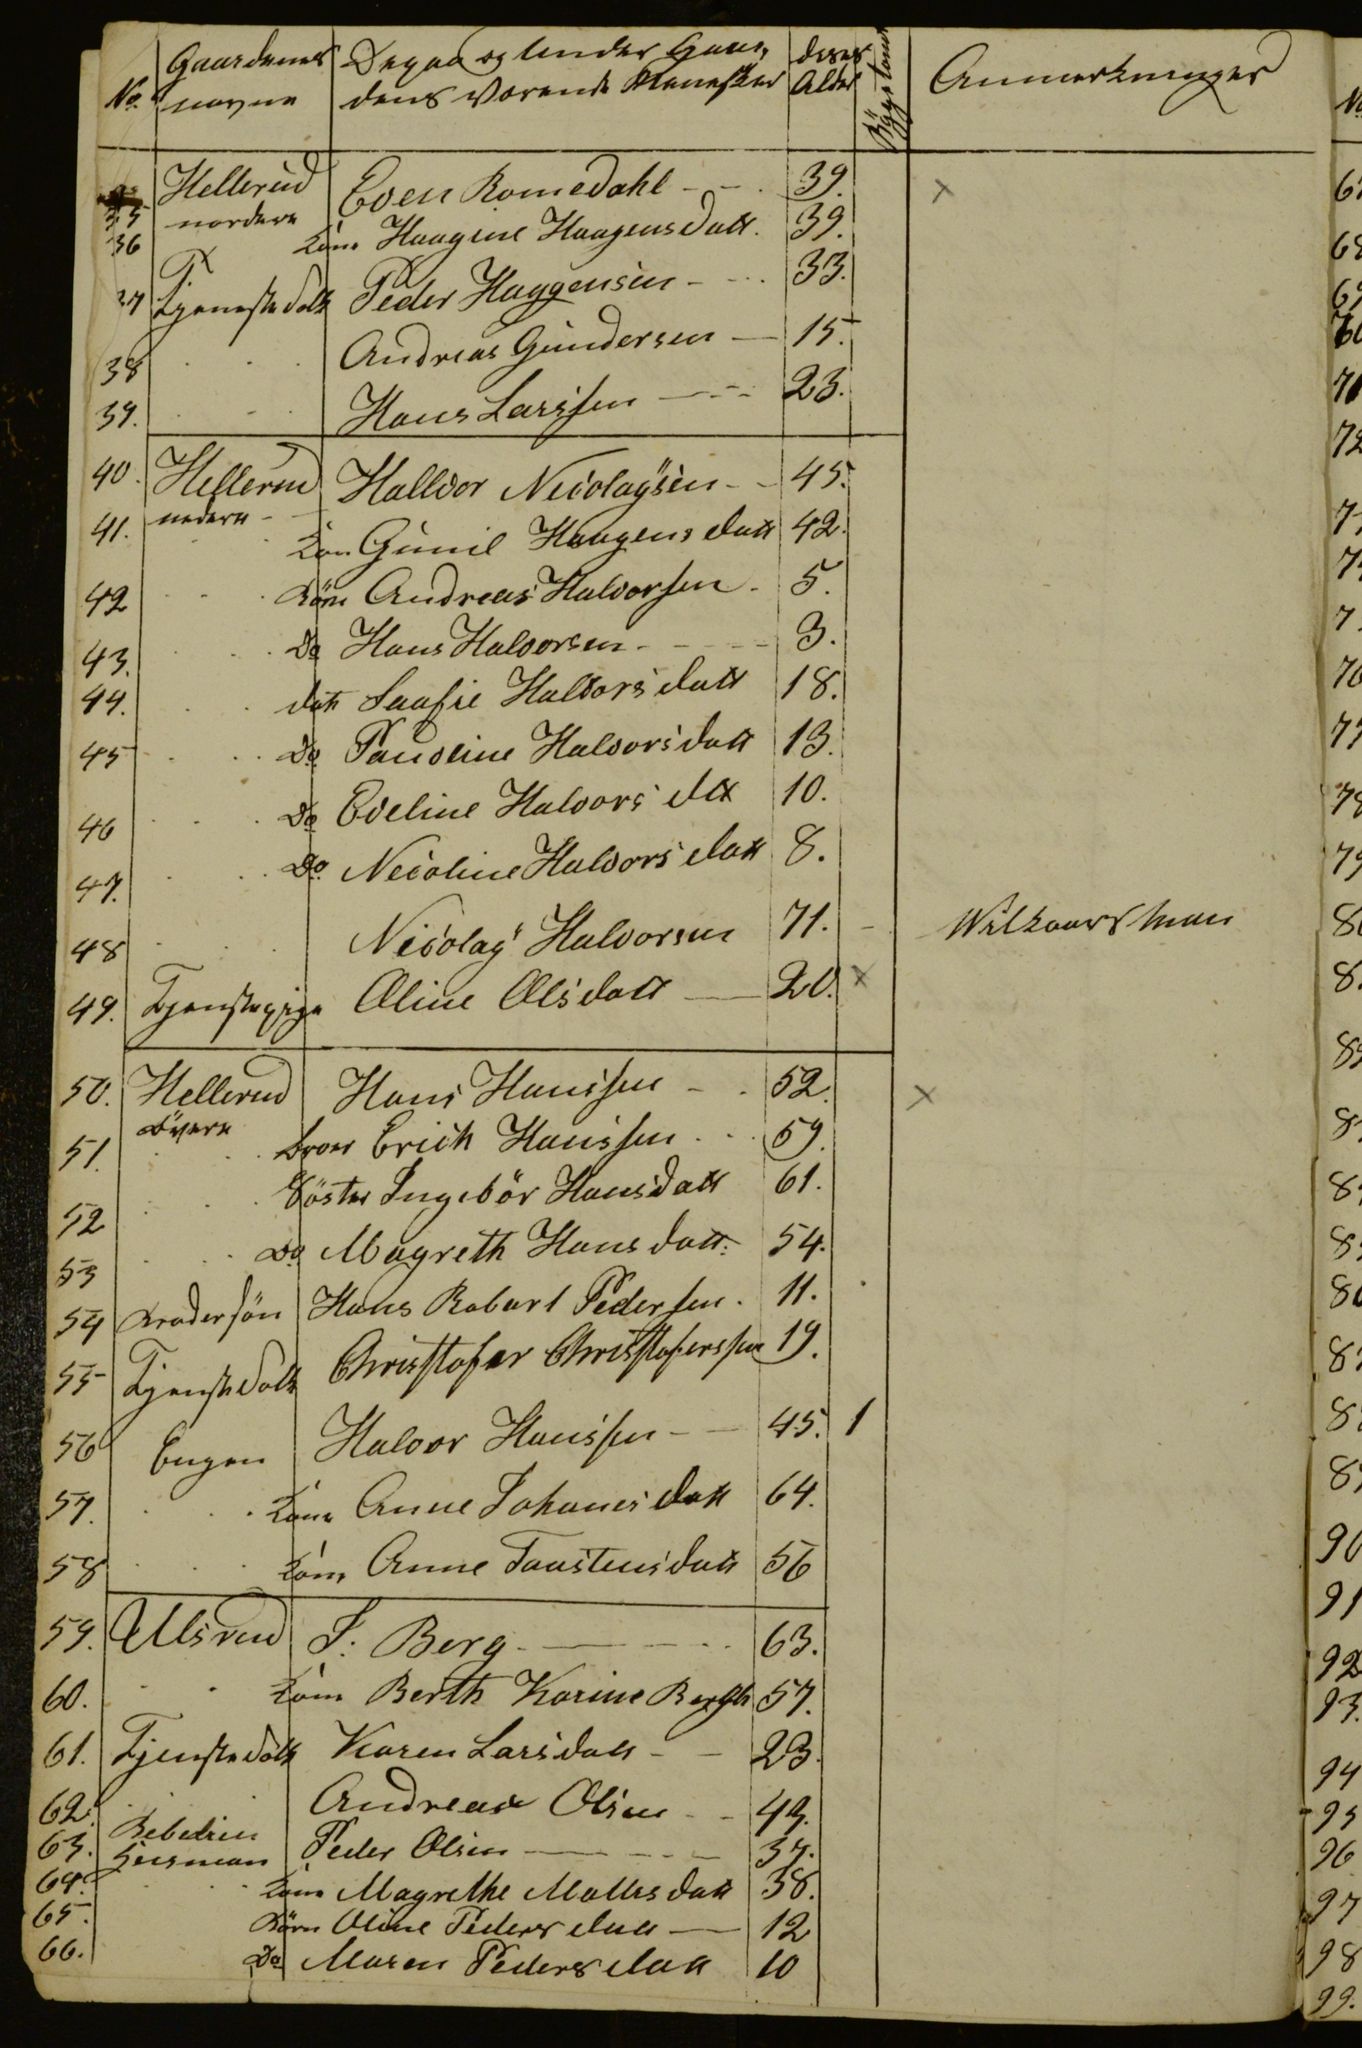 No. Gaardenes navne Depaa og under Gaardens værende Menesker deres Alder Anmerkninger
35 Hellerud nordere Even Romedahl - - 39.
36 kone Haagine Haagensdatt. 39.
37 Tjenestefolk Peder Haggensen - - 33.
38 Andreas Gundersen - 15.
39. Hans Larssen - - - 23.
40. Hellerud nedere Halldor Nicolaÿsen - - 45.
41. kon Gunil Haagensdatt 42.
42 Börn Andreas Halvorsen. 5.
43. Do Hans Halvorsen - - - 3.
44. datt Saafie Halvorsdatt 18.
45 Do Pauoline Halvorsdatt 13.
46 Do Eveline Halvorsdtt 10.
47. Do Nicoline Halvorsdatt 8.
48 Nicolaÿ Halvorsen 71. - Wilkaarsman
49. Tjenstepige Oline Olsdatt - 20.
50. Hellerud Övere Hans Hanssen - - 52.
51. broer Erich Hanssen - - 59.
52 Söster Ingebör Hansdatt 61.
53 Do Magreth Hansdatt: 54.
54 Brodersön Hans Robert Pedersen. 11.
55 Tjenstefolk Christofer Christoferssen 19.
56 Engen Halvor Hanssen - - 45. 1
57. kone Anne Johanesdatt 64.
58 kone Anne Taastensdatt 56
59. Ulsrud J. Berg - - - 63.
60. kone Berth Karine Bergh 57.
61. Tjenstefolk Karen Larsdatt - - 23.
62. Andreas Olsen - - 43.
63. Huusman Peder Olsen - - - 37.
64. kone Magrethe Mattisdatt 38.
65. Börn Oline Pedersdatt - 12
66. Do Maren Pedersdatt 10
No
67
68
69
70
71
72
90
91
92
93.
94
95
96
97
98
99.